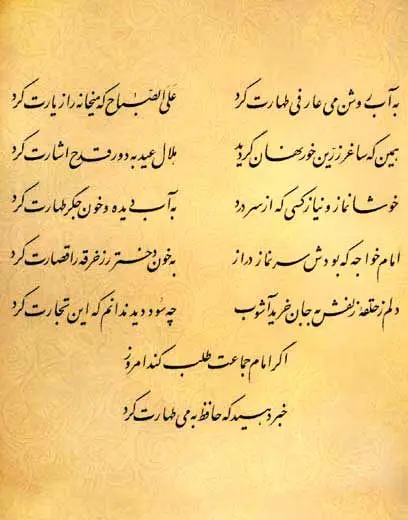 به آب روشن می عارفی طهارت کرد علی الصّباح که میخانه را زیارت کرد
همین که ساغر زرّین خور نهان گردید هلال عید به دور قدح اشارت کرد
خوشا نماز و نیاز کسی که از سر درد به آب دیده و خون جگر طهارت کرد
امام خواجه که بودش سر نماز دراز به خون دختر رز خرقه را قصارت کرد
دلم ز حلقهٔ زلفش به جان خرید آشوب چه سود دید ندانم که این تجارت کرد
اگر امام جماعت طلب کند امروز
خبر دهید که حافظ به می طهارت کرد